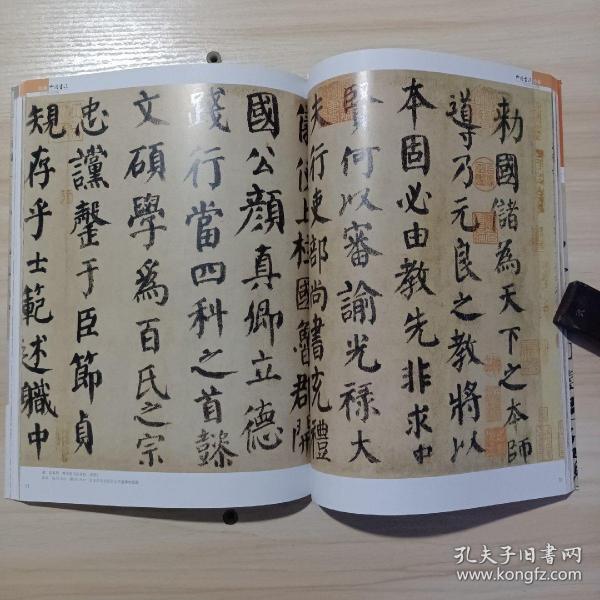 中国书法
中国书法
勑國儲為天下之本師
導乃元良之教將以
本固必由教先非求忠
賢何以審諭光祿大
夫行吏部尚書充禮
儀使上柱國魯郡開
國公顏真卿立德
踐行當四科之首懿
文碩學為百氏之宗
忠讜罄于臣節貞
規存乎士範述職中
孔夫子旧书网
www.kongfz.com